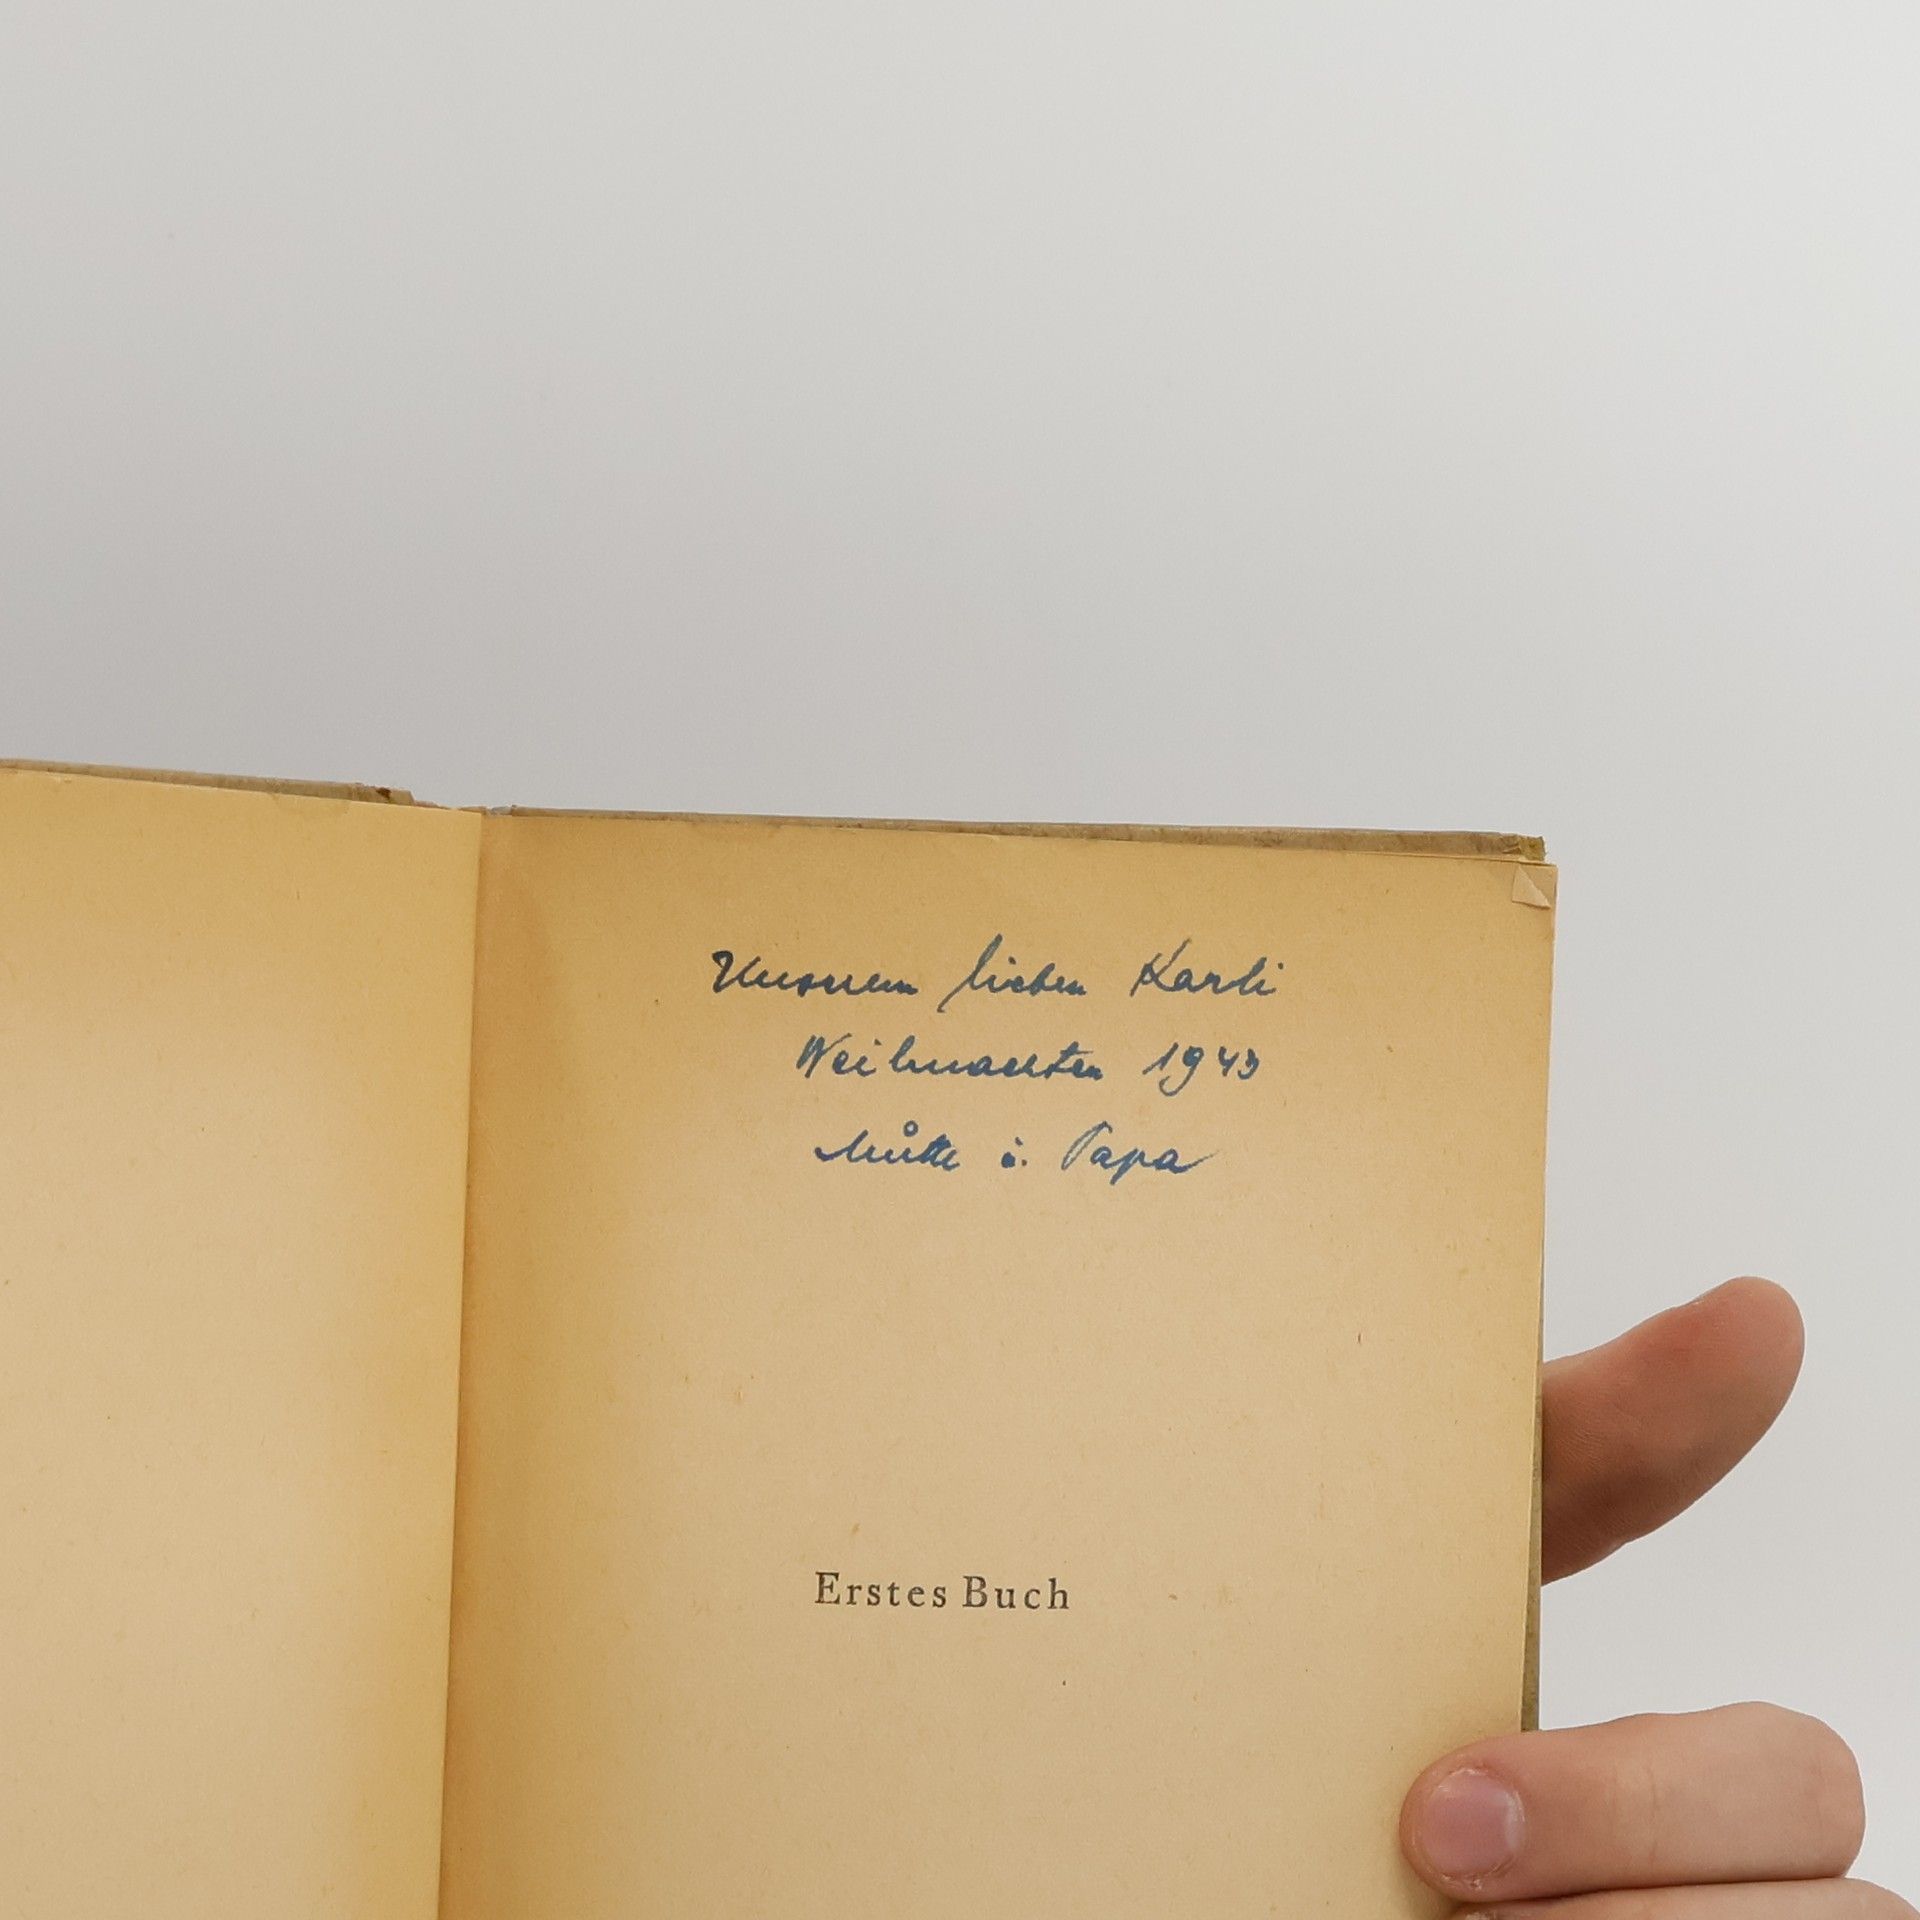 Unserem lieben Karli
Weihnachten 1943
Mutti u. Papa
Erstes Buch